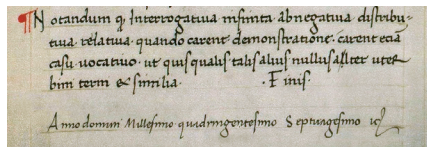 ¶ Notandum q̃ Interrogatiua infinita abnegatiua distribu-
tiua relatiua quando carent demonstratione carent eciã
casu uocatiuo ut quis qualis talis alius nullus alter uter
bini term̄ & similia. Finis.
Anno domini Millesimo quadringentesimo Septuagesimo